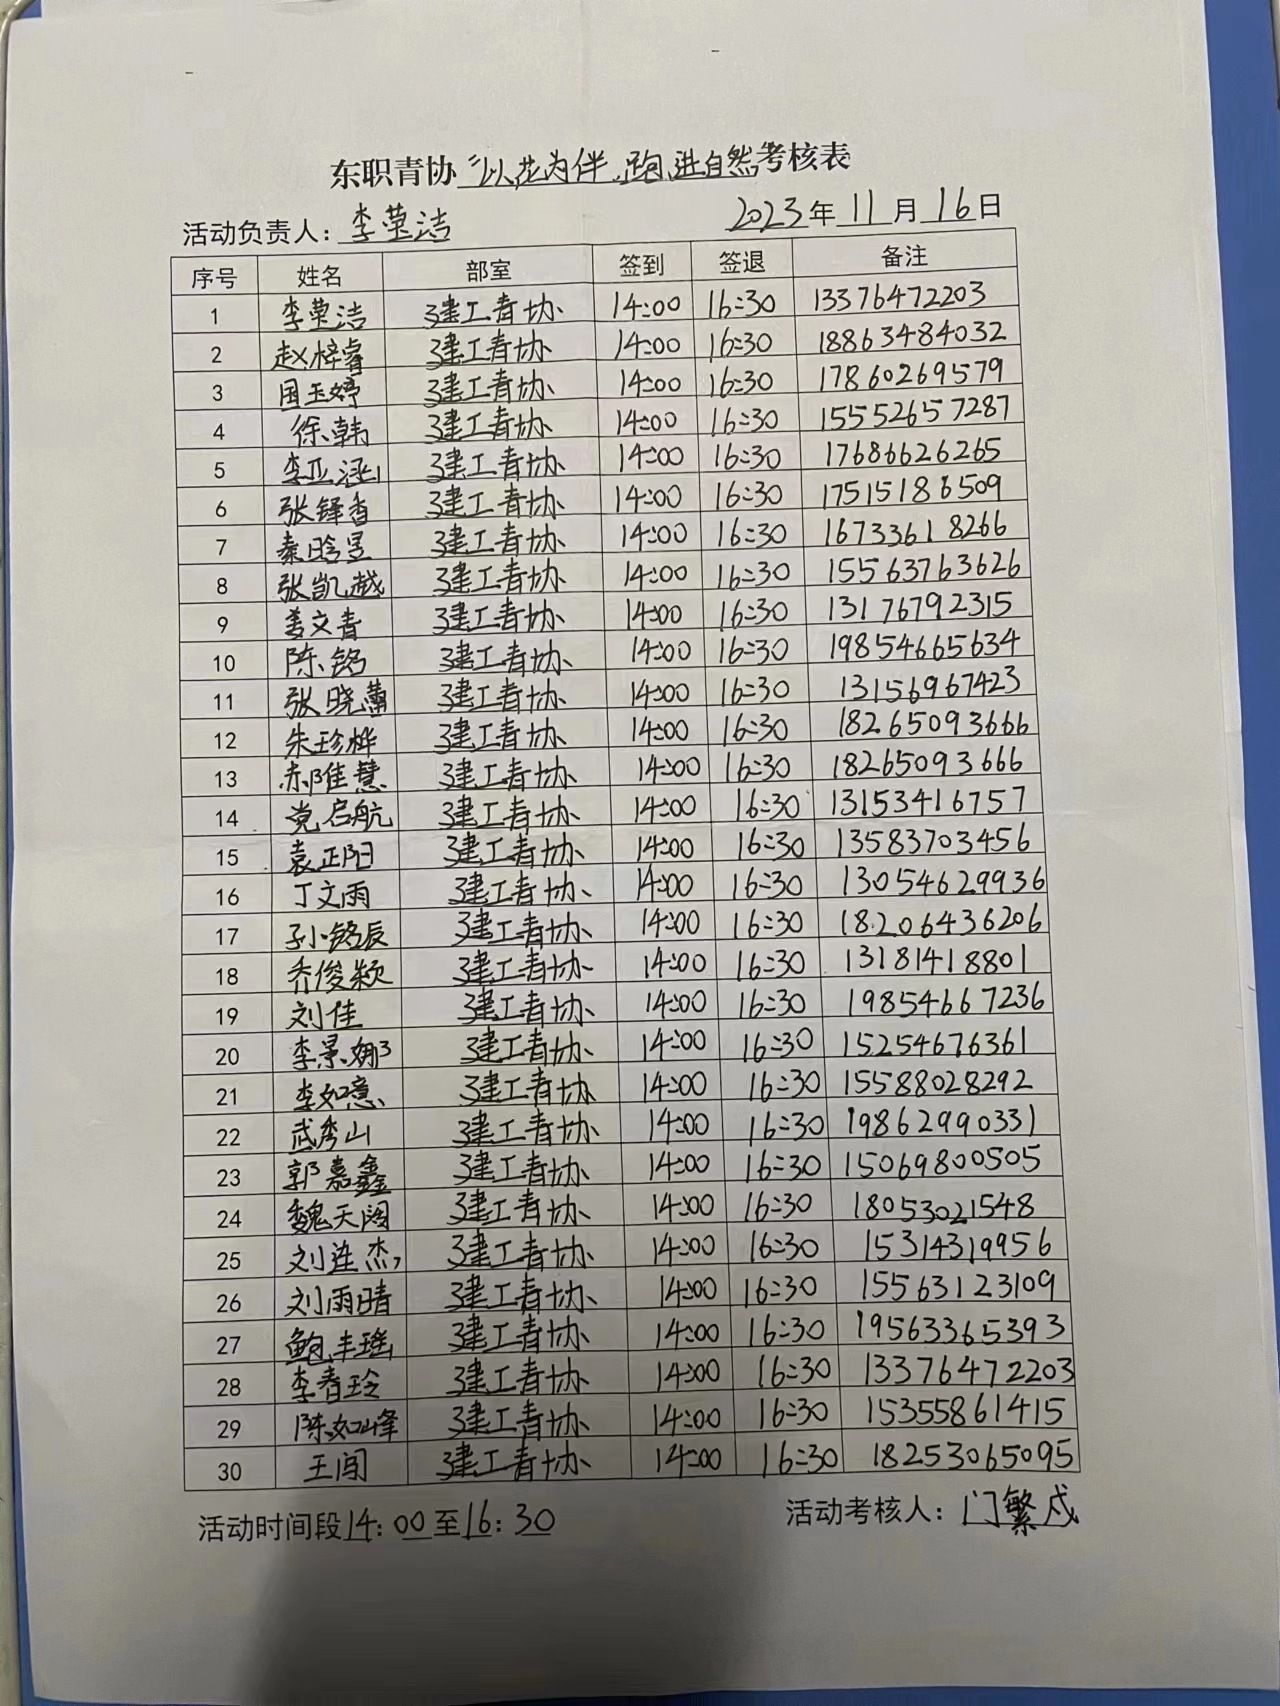 东职青协“以花为伴,跑进自然考核表
活动负责人：李莹洁 2023年11月16日
序号 姓名 部室 签到 签退 备注
1 李莹洁 建工青协 14:00 16:30 13376472203
2 赵梓睿 建工青协 14:00 16:30 18863484032
3 国玉婷 建工青协 14:00 16:30 17860269579
4 徐韩 建工青协 14:00 16:30 15552657287
5 李亚涵 建工青协 14:00 16:30 17686626265
6 张铎香 建工青协 14:00 16:30 17515186509
7 秦晗昱 建工青协 14:00 16:30 16733618266
8 张凯越 建工青协 14:00 16:30 15563763626
9 姜文青 建工青协 14:00 16:30 13176792315
10 陈铭 建工青协 14:00 16:30 19854665634
11 张晓 建工青协 14:00 16:30 13156967423
12 朱珍桦 建工青协 14:00 16:30 18265093666
13 郝佳慧 建工青协 14:00 16:30 18265093666
14 党启航 建工青协 14:00 16:30 13153416757
15 袁正阳 建工青协 14:00 16:30 13583703456
16 丁文雨 建工青协 14:00 16:30 13054629936
17 孙铭辰 建工青协 14:00 16:30 18206436206
18 乔俊颖 建工青协 14:00 16:30 13181418801
19 刘佳 建工青协 14:00 16:30 19854667236
20 李景娜 建工青协 14:00 16:30 15254676361
21 李如意 建工青协 14:00 16:30 15588028292
22 武秀山 建工青协 14:00 16:30 19862990331
23 郭嘉鑫 建工青协 14:00 16:30 15069800505
24 魏天阔 建工青协 14:00 16:30 18053021548
25 刘连杰 建工青协 14:00 16:30 15314319956
26 刘雨晴 建工青协 14:00 16:30 15563123109
27 鲍丰瑶 建工青协 14:00 16:30 19563365393
28 李春玲 建工青协 14:00 16:30 13376472203
29 陈如峰 建工青协 14:00 16:30 15355861415
30 王闯 建工青协 14:00 16:30 18253065095
活动时间段14：00至16：30 活动考核人：门繁成